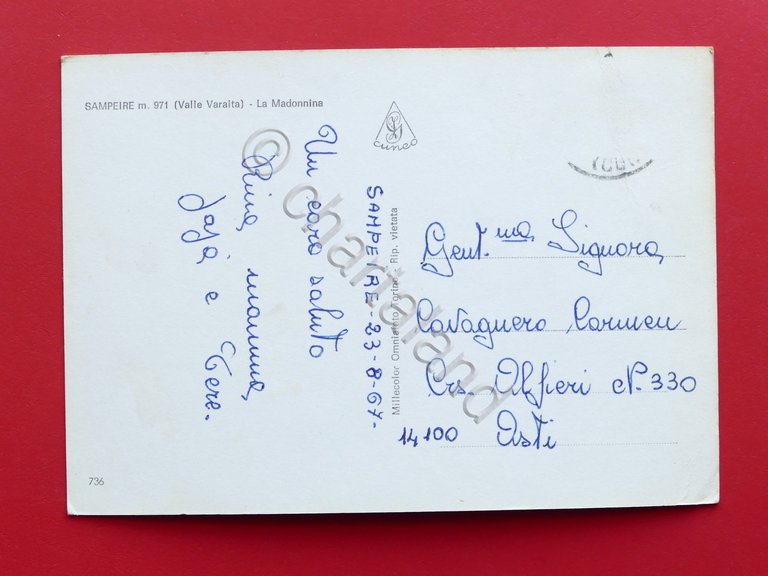 SAMPEIRE m. 971 (Valle Varaita) - La Madonnina
cuneo
Un caro saluto
Rina, mamma,
Jajà e Tere.
SAMPEIRE - 23-8-67-
Millecolor Omniafoto Torino - Rip. vietata
Gent.ma Signora
Cavagnero Carmen
Crs. Alfieri N. 330
14100 Asti
736
© chartaland